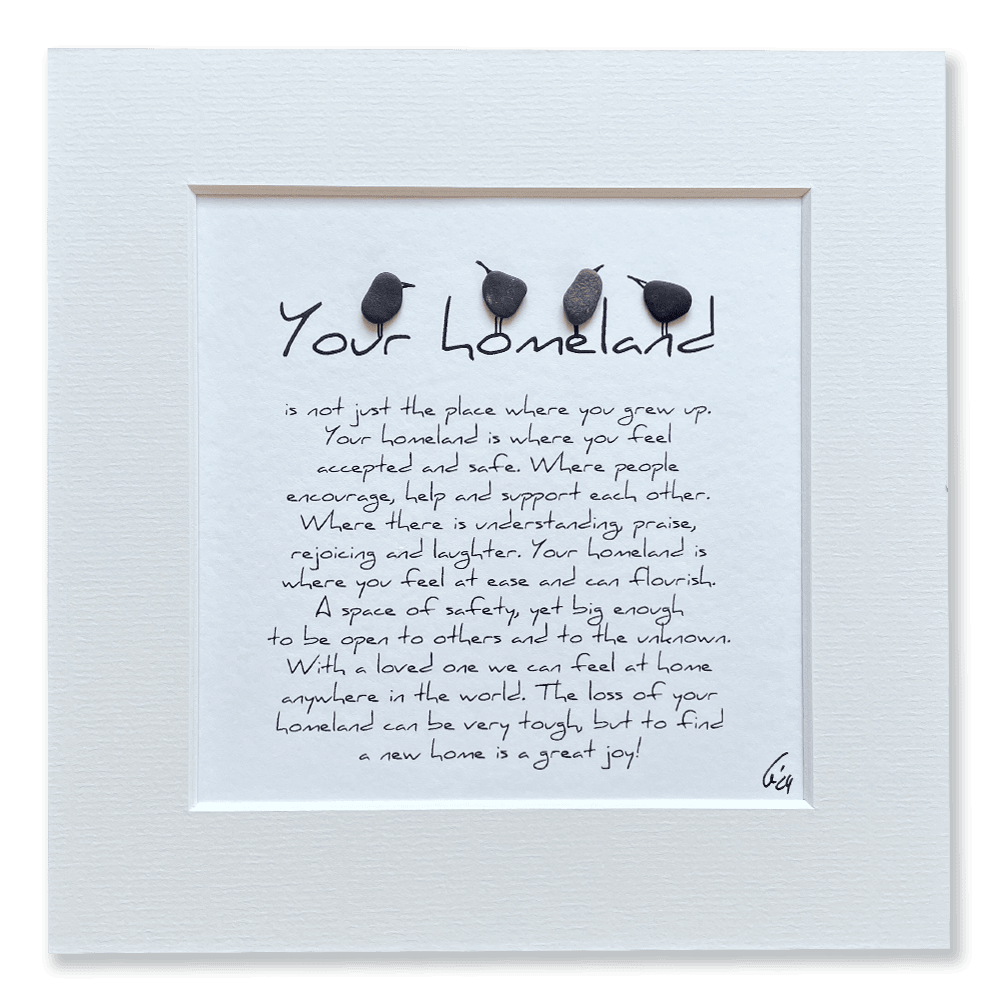 Your homeland
is not just the place where you grew up.
Your homeland is where you feel
accepted and safe. Where people
encourage, help and support each other.
Where there is understanding, praise,
rejoicing and laughter. Your homeland is
where you feel at ease and can flourish.
A space of safety, yet big enough
to be open to others and to the unknown.
With a loved one we can feel at home
anywhere in the world. The loss of your
homeland can be very tough, but to find
a new home is a great joy!